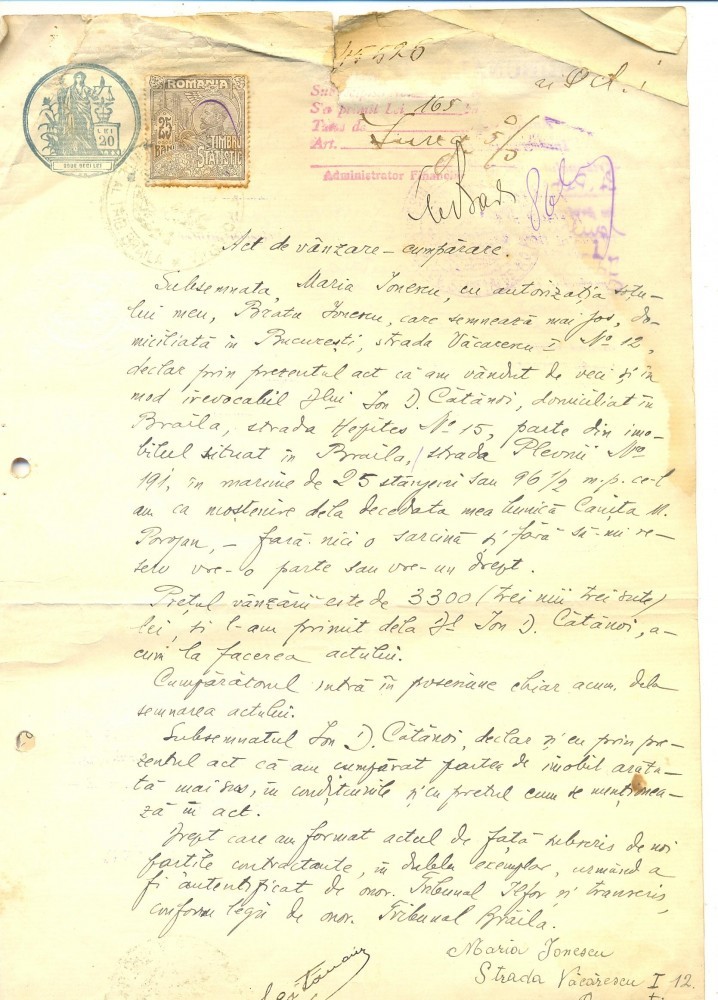 45626
LEI
20
ROMANIA
25 BANI
TIMBRU STATISTIC
S'a primit Lei 165
Taxa de
Art.
Administrator Financiar
Act de vânzare-cumpărare.
Subsemnata, Maria Ionescu, cu autorizația soțu-
lui meu, Bratu Ionescu, care semnează mai jos, do-
miciliată în București, strada Văcărescu I No 12,
declar prin prezentul act că am vândut de veci și în
mod irevocabil Dlui Ion D. Cătănoi, domiciliat în
Brăila, strada Hepites No 15, parte din imo-
bilul situat în Braila, strada Plevnii No
191, în marime de 25 stânjeni sau 96 1/2 m.p. ce-l
am ca moștenire dela decedata mea bunică Canița M.
Porojan, – fară nici o sarcină și fără să-mi re-
zerv vre-o parte sau vre-un drept.
Prețul vânzării este de 3300 (trei mii trei sute)
lei, și l-am primit dela Dl Ion D. Cătănoi, a-
cum la facerea actului.
Cumpărătorul intră în posesiune chiar acum dela
semnarea actului.
Subsemnatul Ion D. Cătănoi, declar și eu prin pre-
zentul act că am cumpărat partea de imobil arăta-
tă mai sus, în condițiunile și cu prețul cum se menționea-
ză în act.
Drept care am format actul de față subscris de noi
părțile contractante, în dublu exemplar, urmând a
fi autentificat de onor. Tribunal Ilfov și transcris,
conform legii de onor. Tribunal Brăila.
Maria Ionescu
Strada Văcărescu I 12.